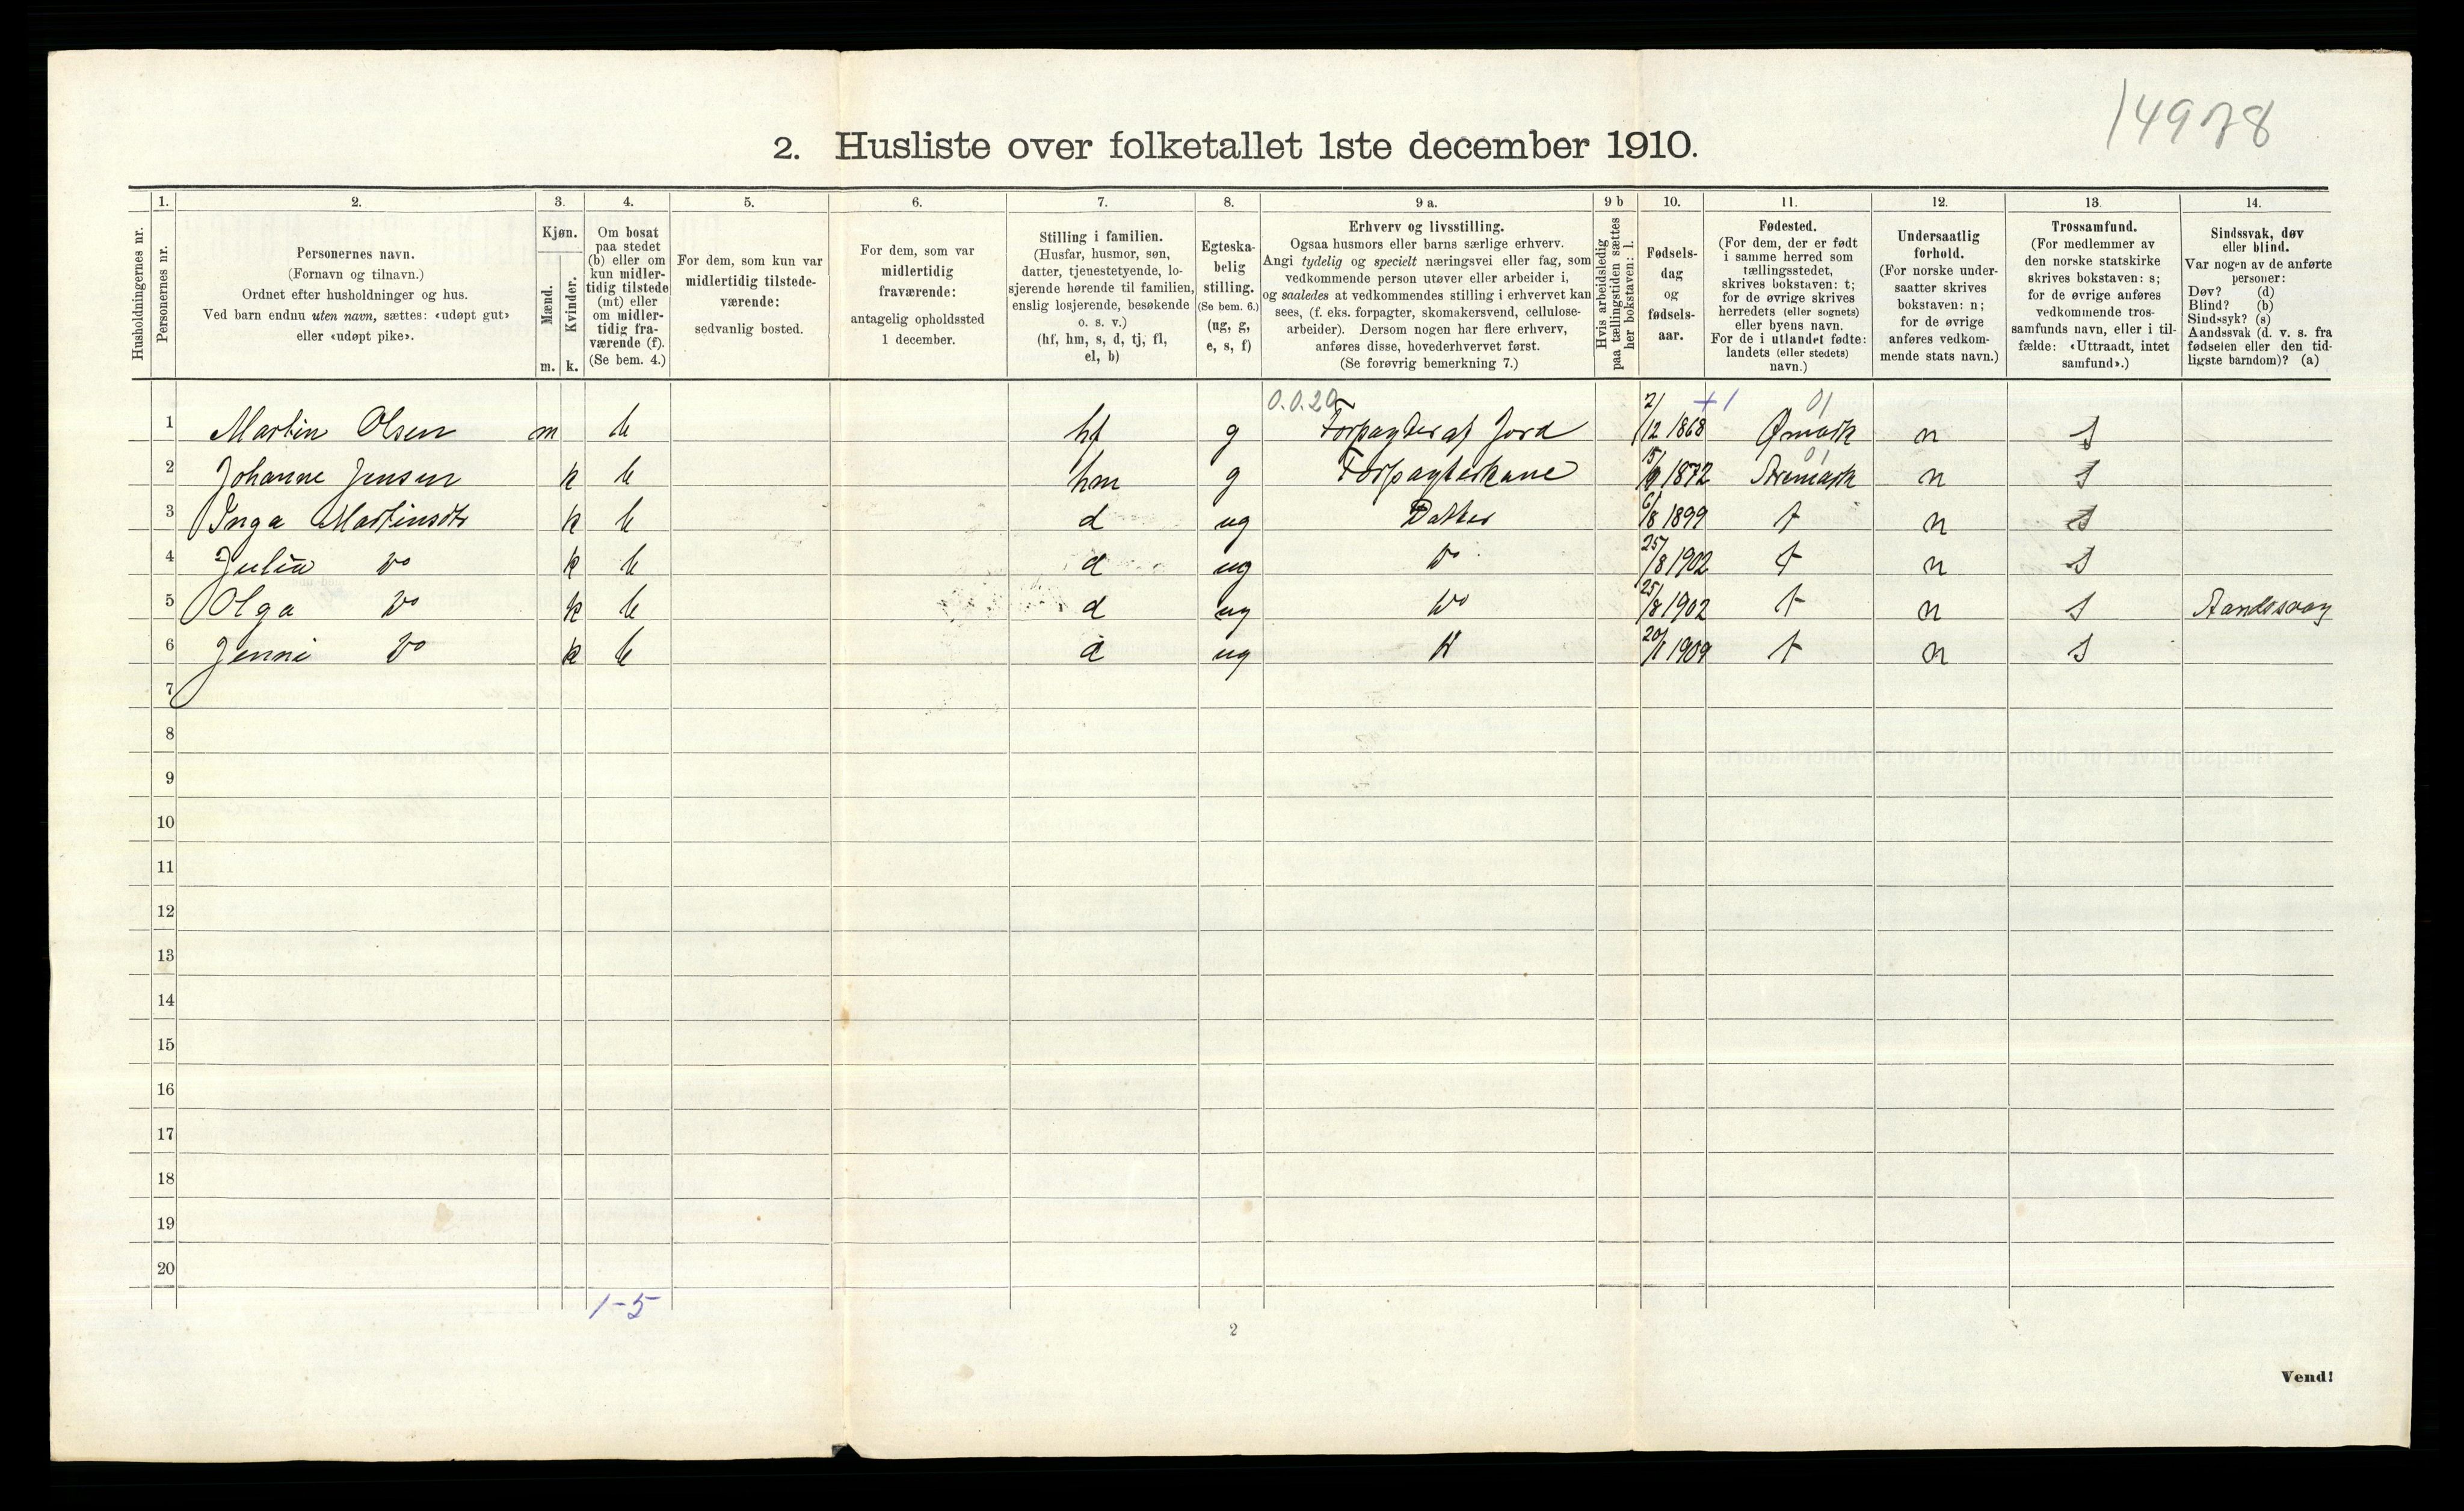 14978
2. Husliste over folketallet 1ste december 1910.
Husholdningernes nr.
1.
Personernes nr.
2.
Personernes navn.
(Fornavn og tilnavn.)
Ordnet efter husholdninger og hus.
Ved barn endnu uten navn, sættes: «udøpt gut»
eller «udøpt pike».
3.
Kjøn.
Mænd.
Kvinder.
m. k.
4.
Om bosat
paa stedet
(b) eller om
kun midler-
tidig tilstede
(mt) eller
om midler-
tidig fra-
værende (f).
(Se bem. 4.)
5.
For dem, som kun var
midlertidig tilstede-
værende:
sedvanlig bosted.
6.
For dem, som var
midlertidig
fraværende:
antagelig opholdssted
1 december.
7.
Stilling i familien.
(Husfar, husmor, søn,
datter, tjenestetyende, lo-
sjerende hørende til familien,
enslig losjerende, besøkende
o. s. v.)
(hf, hm, s, d, tj, fl,
el, b)
8.
Egteska-
belig
stilling.
(Se bem. 6.)
(ug, g,
e, s, f)
9 a.
Erhverv og livsstilling.
Ogsaa husmors eller barns særlige erhverv.
Angi tydelig og specielt næringsvei eller fag, som
vedkommende person utøver eller arbeider i,
og saaledes at vedkommendes stilling i erhvervet kan
sees, (f. eks. forpagter, skomakersvend, cellulose-
arbeider). Dersom nogen har flere erhverv,
anføres disse, hovederhvervet først.
(Se forøvrig bemerkning 7.)
9 b
Hvis arbeidsledig
paa tællingstiden sættes
her bokstaven: l.
10.
Fødsels-
dag
og
fødsels-
aar.
11.
Fødested.
(For dem, der er født
i samme herred som
tællingsstedet,
skrives bokstaven: t;
for de øvrige skrives
herredets (eller sognets)
eller byens navn.
For de i utlandet fødte:
landets (eller stedets)
navn.)
12.
Undersaatlig
forhold.
(For norske under-
saatter skrives
bokstaven: n;
for de øvrige
anføres vedkom-
mende stats navn.)
13.
Trossamfund.
(For medlemmer av
den norske statskirke
skrives bokstaven: s;
for de øvrige anføres
vedkommende tros-
samfunds navn, eller i til-
fælde: «Uttraadt, intet
samfund».)
14.
Sindssvak, døv
eller blind.
Var nogen av de anførte
personer:
Døv? (d)
Blind? (b)
Sindssyk? (s)
Aandssvak (d. v. s. fra
fødselen eller den tid-
ligste barndom)? (a)
0.0.20 +1 01
1 Martin Olsen m b hf g Forpagter af Jord 2/12 1868 Ømark n s
01
2 Johanne Jensen k b hm g Forpagterkone 1872 Aremark n s
3 Inga Martinsdtr k b d ug Datter 6/8 1899 t n s
4 Julia Do k b d ug Do 25/8 1902 t n s
5 Olga Do k b d ug Do 25/8 1902 t n s Aandssvag
6 Jenni Do k b d ug 20/1 1909 t n s
7
8
9
10
11
12
13
14
15
16
17
18
19
20
1-5
2
Vend!